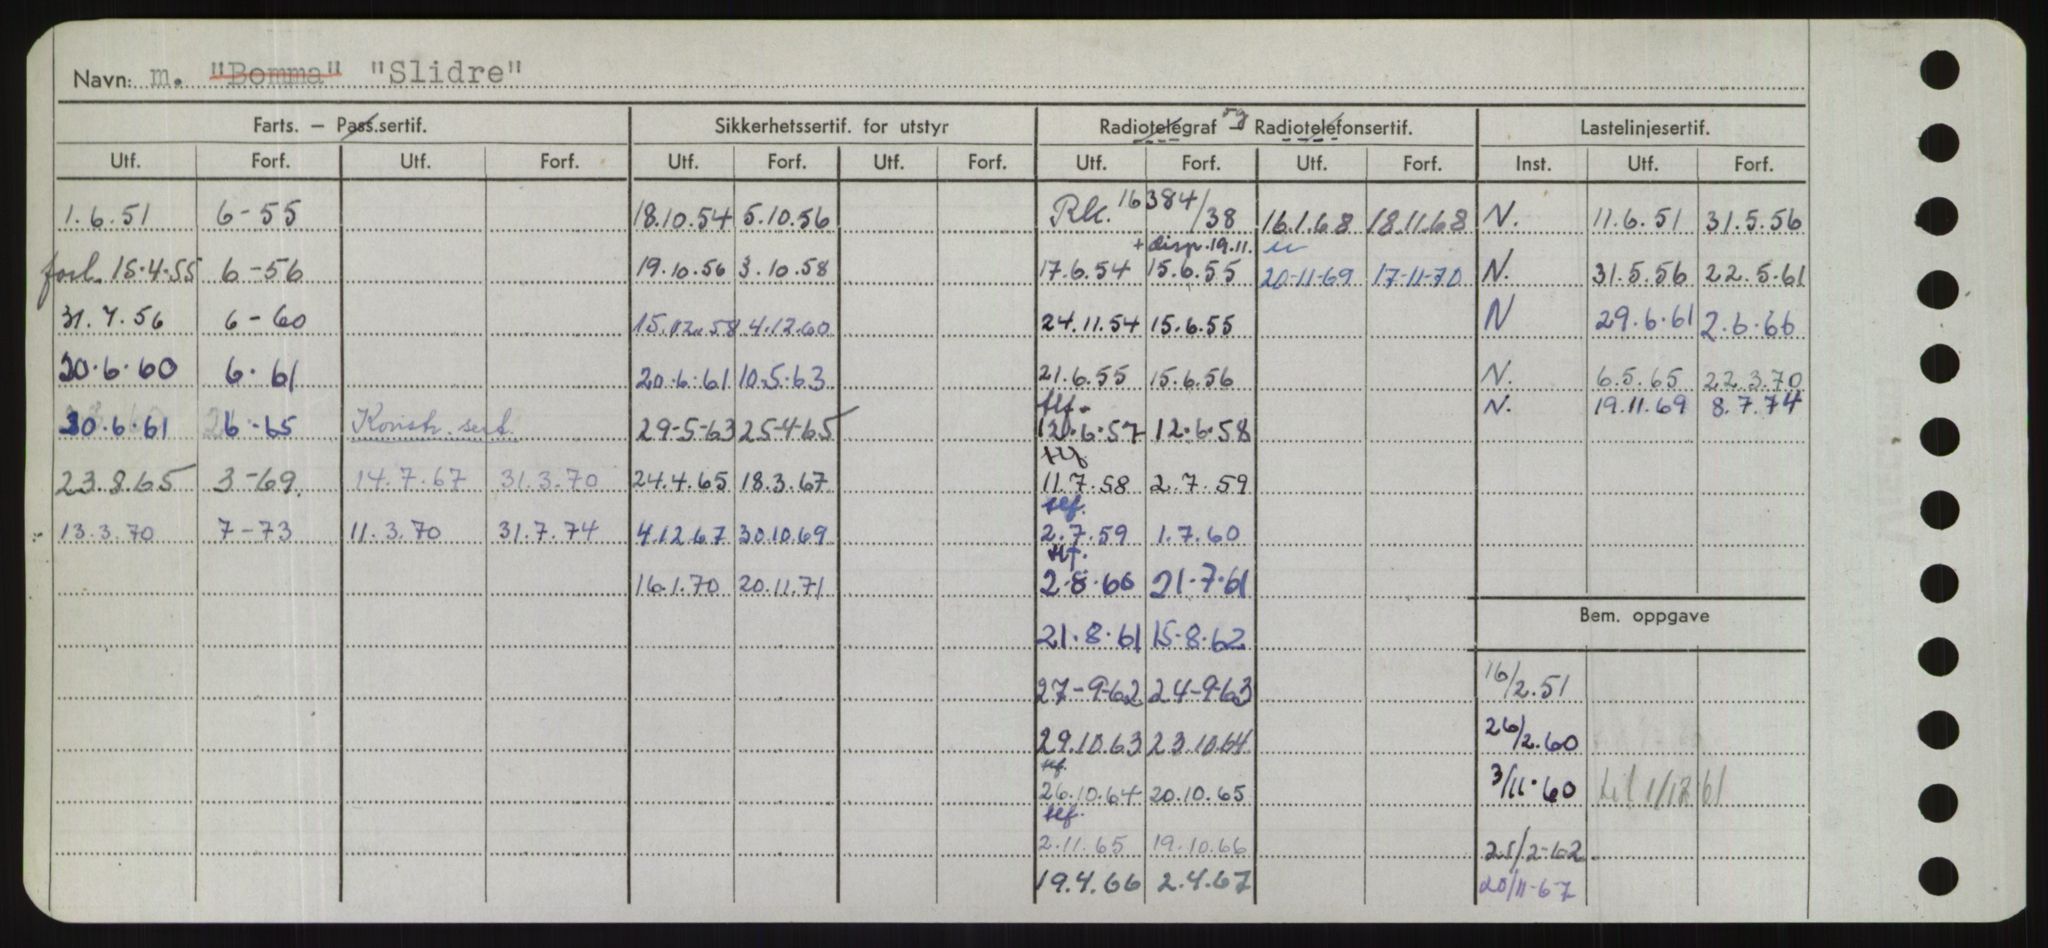 Navn: m. "Bomma" "Slidre"
Farts. – Pass.sertif. Sikkerhetssertif. for utstyr Radiotelegraf – og Radiotelefonsertif. Lastelinjesertif.
Utf. Forf. Utf. Forf. Utf. Forf. Utf. Forf. Utf. Forf. Utf. Forf. Inst. Utf. Forf.
1.6.51 6-55 18.10.54 5.10.56 Rk. 16384/38 16.1.68 18.11.68 N. 11.6.51 31.5.56
+ disp. 19.11.
forl. 15.4.55 6-56 19.10.56 3.10.58 17.6.54 15.6.55 20-11-69 17-11-70 N. 31.5.56 22.5.61
31.7.56 6-60 15.12.58 4.12.60 24.11.54 15.6.55 N 29.6.61 2.6.66
20.6.60 6.61 20.6.61 10.5.63 21.6.55 15.6.56 N. 6.5.65 22.3.70
tlf. N. 19.11.69 8.7.74
30.6.61 6-65 Konstr. sert. 29-5-63 25-4-65 20.6.57 12.6.58
tlf
23.8.65 3-69. 14.7.67 31.3.70 24.4.65 18.3.67 11.7.58 2.7.59
tlf.
13.3.70 7-73 11.3.70 31.7.74 4.12.67 30.10.69 2.7.59 1.7.60
tlf.
16.1.70 20.11.71 2.8.60 21.7.61
Bem. oppgave
21.8.61 15.8.62
27-9-62 24-9-63 16/2.51
29.10.63 23.10.64 26/2.60
tlf.
26.10.64 20.10.65 3/11.60 til 1/12 61
tlf.
2.11.65 19.10.66 25/2-62
19.4.66 2.4.67 20/11-67